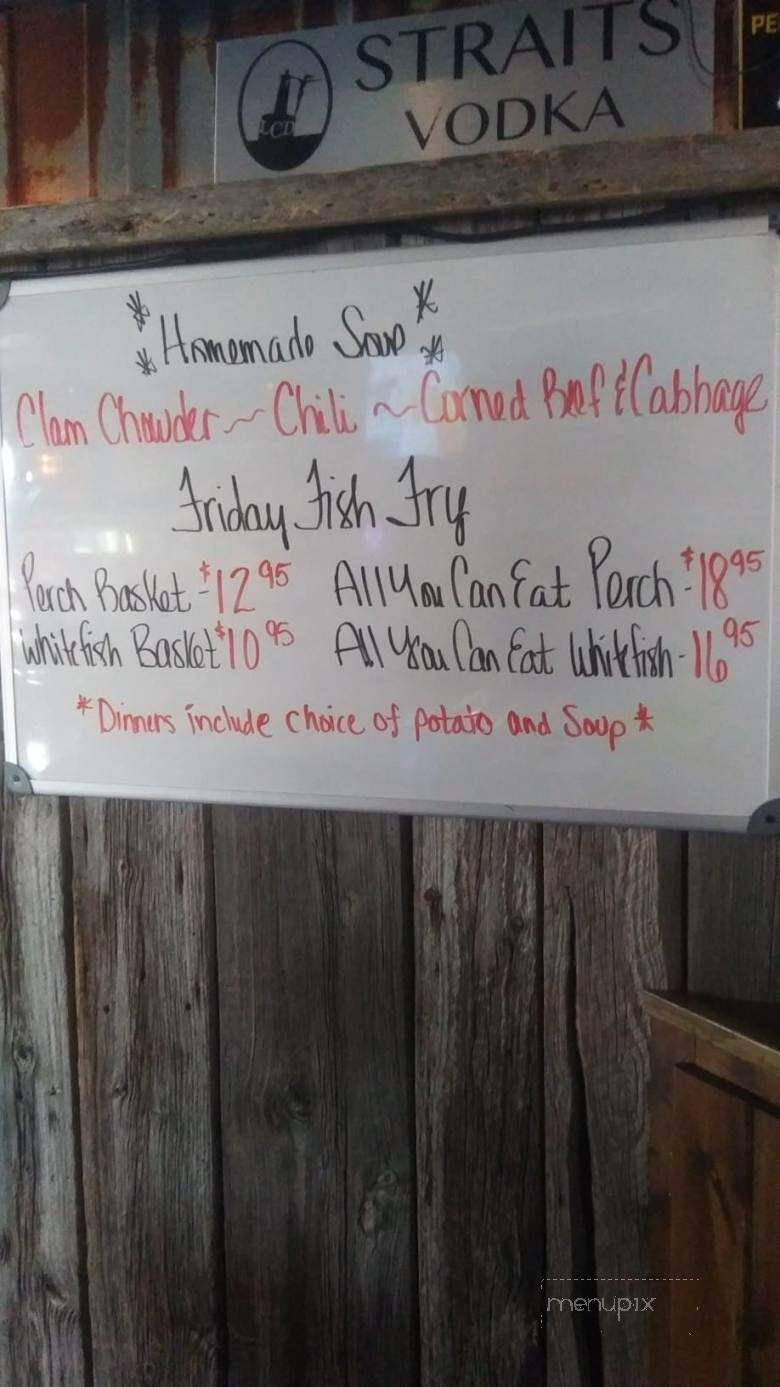 STRAITS
VODKA
LCD
PE
* Homemade Soup *
Clam Chowder ~ Chili ~ Corned Beef & Cabbage
Friday Fish Fry
Perch Basket - $12.95 All You Can Eat Perch - $18.95
Whitefish Basket $10.95 All You Can Eat Whitefish - 16.95
*Dinners include choice of potato and Soup*
menupix